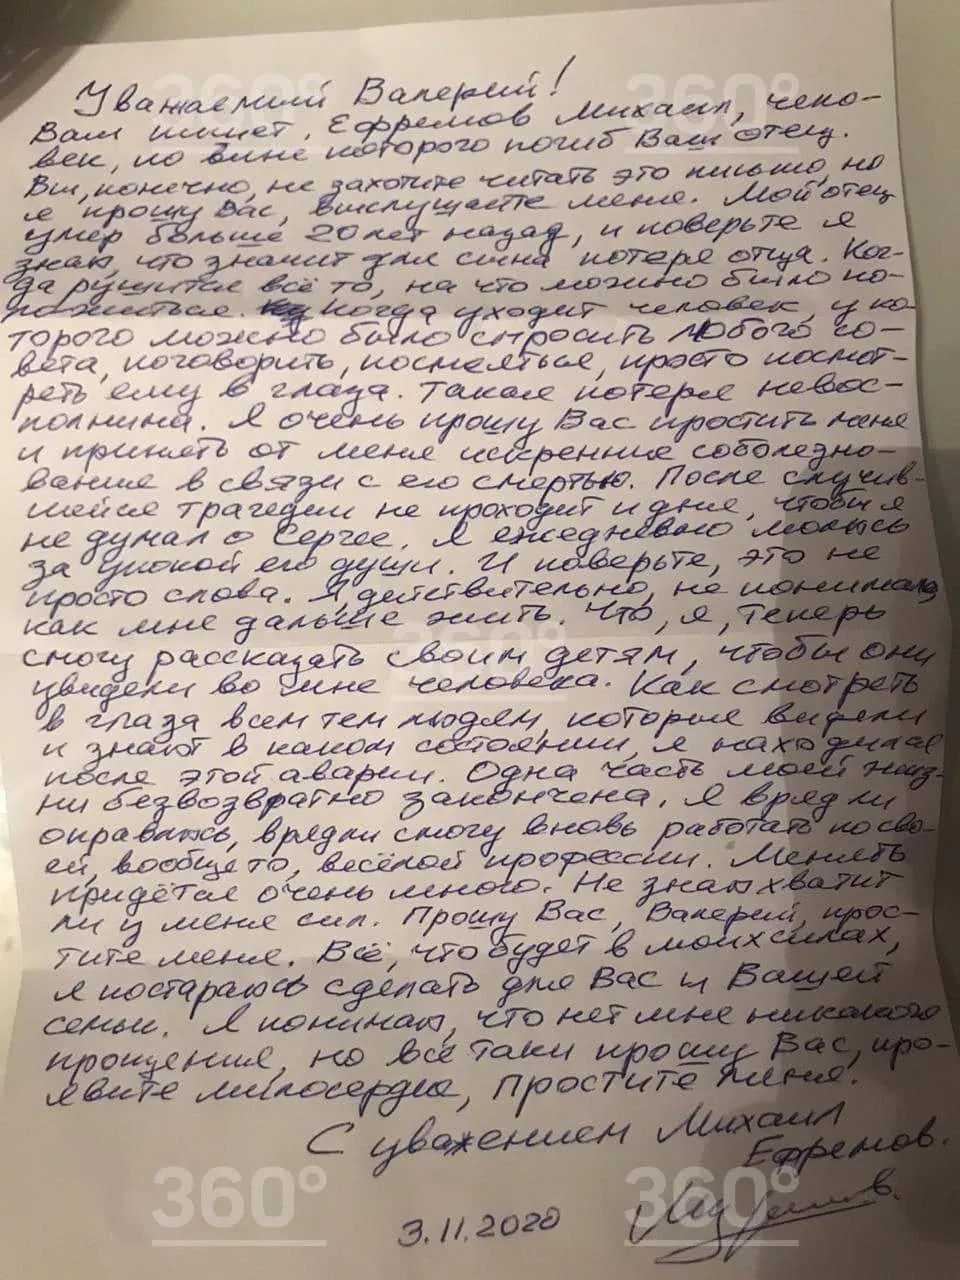 Уважаемый Валерий!
Вам пишет, Ефремов Михаил, чело-
век, по вине которого погиб Ваш отец.
Вы, конечно, не захотите читать это письмо, но
я прошу Вас, выслушайте меня. Мой отец
умер больше 20 лет назад, и поверьте я
знаю, что значит для сына потеря отца. Ког-
да рушится всё то, на что можно было по-
ложиться. Когда уходит человек, у ко-
торого можно было спросить любого со-
вета, поговорить, посмеяться, просто посмот-
реть ему в глаза. Такая потеря невос-
полнима. Я очень прошу Вас простить меня
и принять от меня искренние соболезно-
вание в связи с его смертью. После случив-
шейся трагедии не проходит и дня, чтобы я
не думал о Сергее. Я ежедневно молюсь
за упокой его души. И поверьте, это не
просто слова. Я, действительно, не понимаю,
как мне дальше жить. Что, я, теперь
смогу рассказать своим детям, чтобы они
увидели во мне человека. Как смотреть
в глаза всем тем людям, которые видели
и знают в каком состоянии, я находился
после этой аварии. Одна часть моей жиз-
ни безвозвратно закончена. Я вряд ли
оправлюсь, врядли смогу вновь работать по сво-
ей, вообще то, весёлой профессии. Менять
придётся очень много. Не знаю хватит
ли у меня сил. Прошу Вас, Валерий, прос-
тите меня. Всё, что будет в моих силах,
я постараюсь сделать для Вас и Вашей
семьи. Я понимаю, что нет мне никакого
прощения, но всё таки прошу Вас, про-
явите милосердие, простите меня.
С уважением Михаил
Ефремов.
3.11.2020
360°
360°
360°
360°
360°